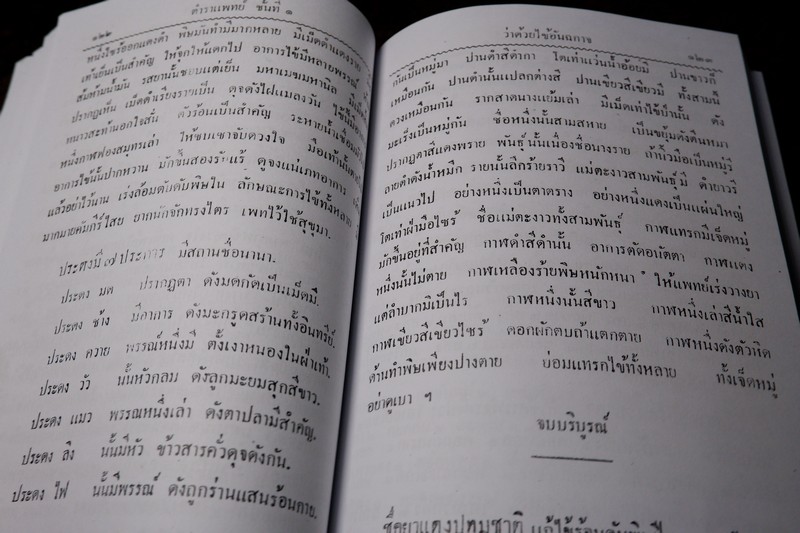 ๑๒๒ ตำราแพทย์ ชั้นที่ ๑
หนึ่งไข้ออกแดงดำ พิษมันทำมีมากหลาย มีเม็ดดำแดงราย
เท้าเย็นเป็นสำคัญ ให้จุกให้แดกไป อาการไข้มีหลายพรรณ์
ส้มห้ามน้ำมัน รสยานั้นชอบแต่เย็น มหาเมฆมหานิล
ปรากฏเห็น เม็ดดำเรียงรายเป็น ดุจดังไฝแมลงวัน ไข้นี้มี
หนาวสะท้านอกใจสั่น ตัวร้อนเป็นสำคัญ ระหายน้ำเชื่อมมัว
หนึ่งกาฬฟองสมุทรเล่า ให้ซบเซาจับดวงใจ มือเท้านั้น
อาการไข้นั้นปากหวาน มักขึ้นสองรักแร้ ดูจงแน่เภทอาการ
แล้วอย่าไว้นาน เร่งล้อมตัดดับพิษใน ลักษณะการไข้ทั้งหลาย
มากมายคัมภีร์ไสย ยากนักจักทรงไตร เพทไว้ใช้สุขุมา.
ประดงมี ๗ ประการ มีสถานชื่อนานา.
ประดง มด ปรากฏตา ดังมดกัดเป็นเม็ดมี.
ประดง ช้าง มีอาการ ดังมะกรูดสร้านทั้งอินทรีย์.
ประดง ควาย พรรณ์หนึ่งมี ตั้งเงาหนองในฝ่าเท้า.
ประดง วัว นั้นหัวกลม ดังลูกมะยมสุกสีขาว.
ประดง แมว พรรณหนึ่งเล่า ดังตาปลามีสำคัญ.
ประดง ลิง นั้นมีหัว ข้าวสารคั่วดุจดังกัน.
ประดง ไฟ นั้นมีพรรณ์ ดังถูกร่านแสนร้อนกาย.
ว่าด้วยไข้อันฉกาจ ๑๒๓
กันเป็นหมู่มา ปานดำสีดำกา โตเท่าแว่นน้ำอ้อยมี ปานขาวก็
เหมือนกัน ปานดำนั้นแปลกต่างสี ปานเขียวสีเขียวมี ทั้งสามนี้
ดวงเหมือนกัน รากสาดนางแย้มเล่า มีเม็ดเท่าไข้ปั้นนั้น ดัง
มะเร็งเป็นหมู่กัน ชื่อหนึ่งนั้นสามสหาย เป็นขยุ้มดังตีนหมา
ปรากฏตาสีแดงพราย พันธุ์นั้นเนื่องชื่อนางราย ถ้านิ้วมือเป็นหมู่มี
ลายดำดังน้ำหมึก รายนั้นลึกร้ายราวี แม่ตะงาวสามพันธุ์มี ดำยาวรี
เป็นแนวไป อย่างหนึ่งเป็นตาตราง อย่างหนึ่งแดงเป็นแผ่นใหญ่
โตเท่าฝ่ามือไซร้ ชื่อแม่ตะงาวทั้งสามพันธุ์ กาฬแทรกมีเจ็ดหมู่
มักขึ้นอยู่ที่สำคัญ กาฬดำสีดำนั้น อาการตัดอนัตตา กาฬแดง
หนึ่งนั้นไม่ตาย กาฬเหลืองร้ายพิษหนักหนา ให้แพทย์เร่งวางยา
แต่ลำบากมิเป็นไร กาฬหนึ่งนั้นสีขาว กาฬหนึ่งเล่าสีน้ำใส
กาฬเขียวสีเขียวไซร้ ดอกผักตบถ้าแตกตาย กาฬหนึ่งดังตัวหิด
ด้านทำพิษเพียงปางตาย ย่อมแทรกไข้ทั้งหลาย ทั้งเจ็ดหมู่
อย่าดูเบา ฯ
จบบริบูรณ์